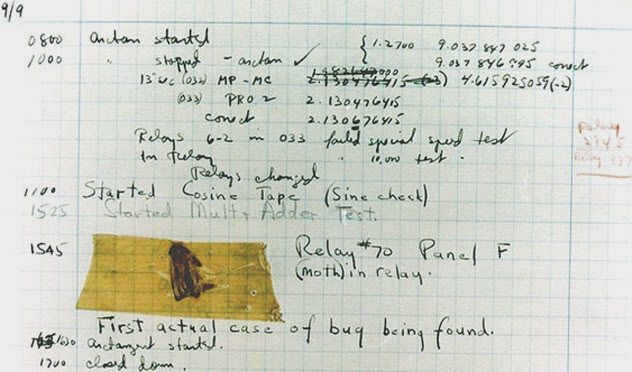 9/9
0800 arctan started
1000 " stopped - arctan ✓ { 1.2700 9.037 847 025
9.037 846 795 correct
13"uc (032) MP - MC 2.130476415 (-3) 4.615925059(-2)
(033) PRO 2 2.130476415
correct 2.130676415
Relays 6-2 in 033 failed special speed test
in Relay " 10,000 test .
Relays changed
Relay
2145
Relay 337
1100 Started Cosine Tape (Sine check)
1525 Started Mult + Adder Test.
1545 Relay #70 Panel F
(moth) in relay.
First actual case of bug being found.
1630 arctangent started.
1700 closed down.